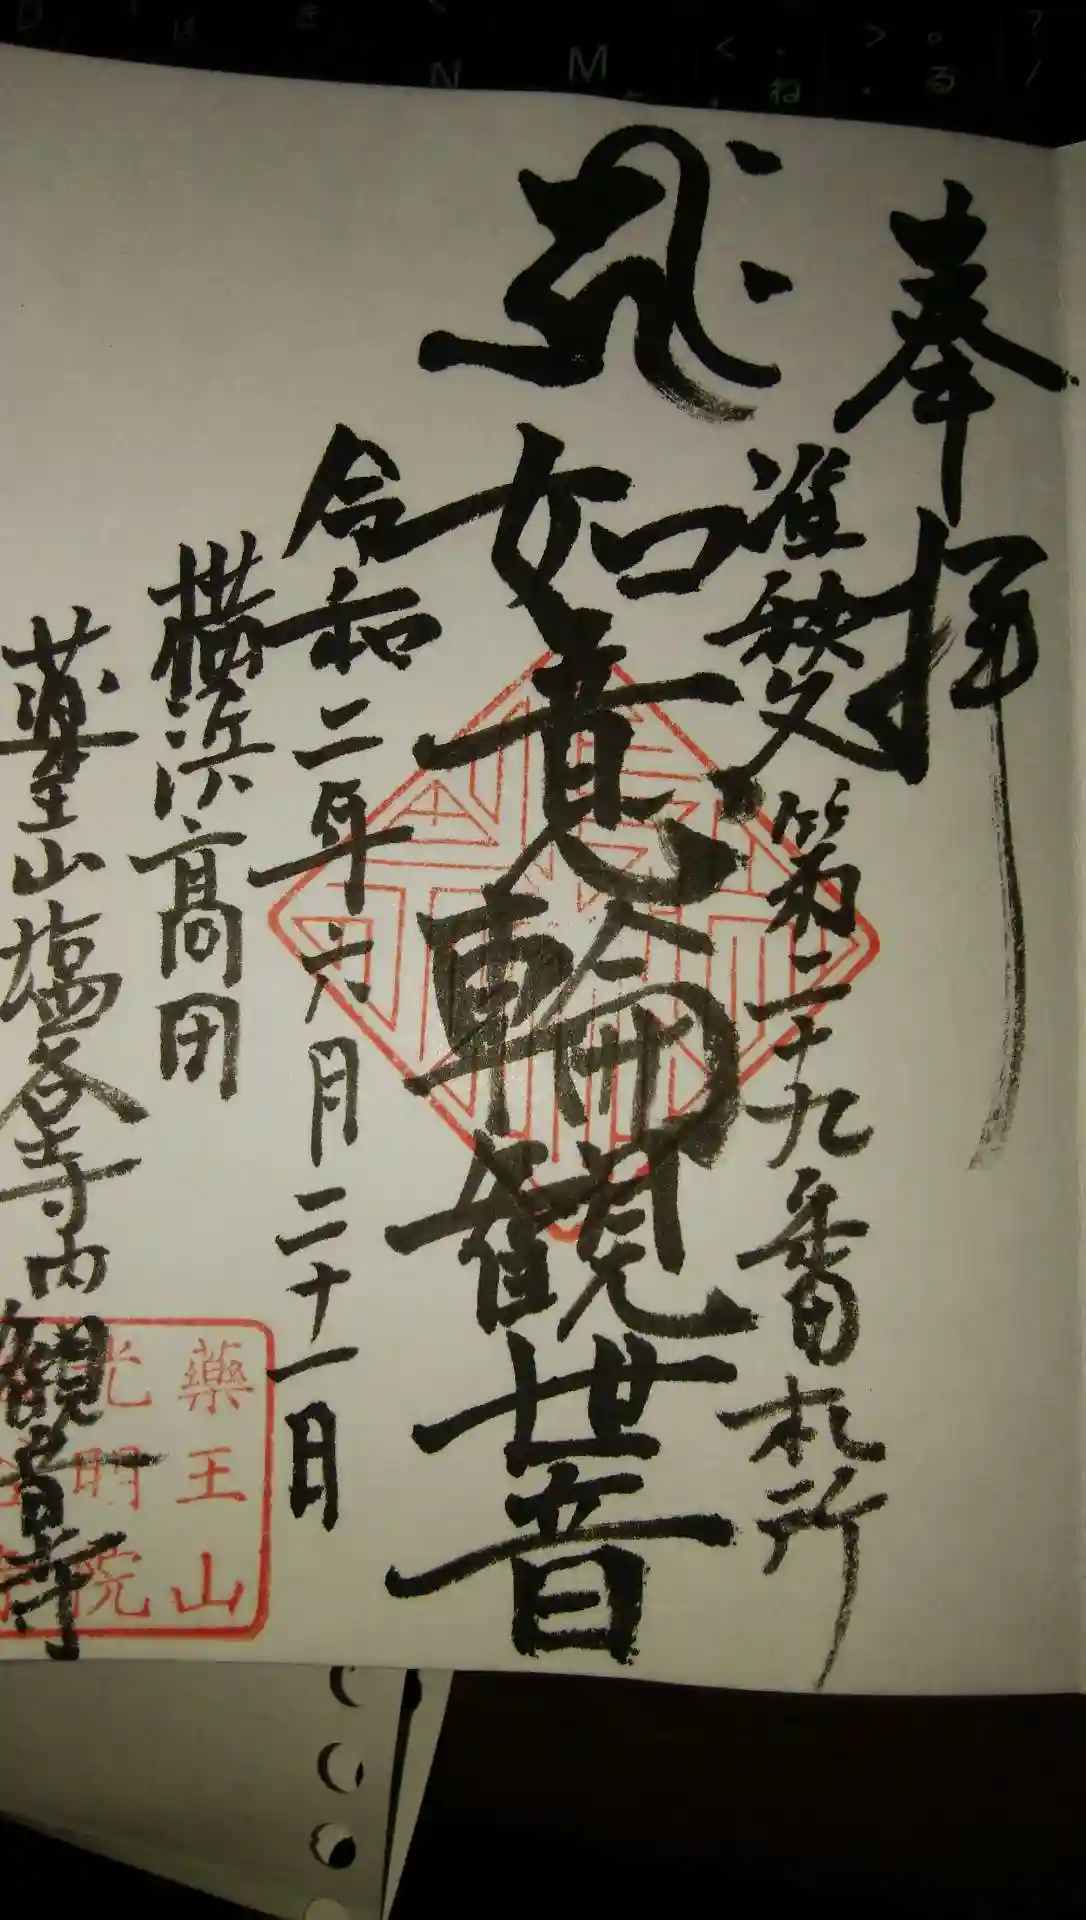 奉拝
准秩父第二十九番札所
如意輪観世音
令和二年六月二十一日
横浜高田
薬王山塩谷寺内観音寺
薬王山
光明院
N M < 、 ね > 。 る ? /